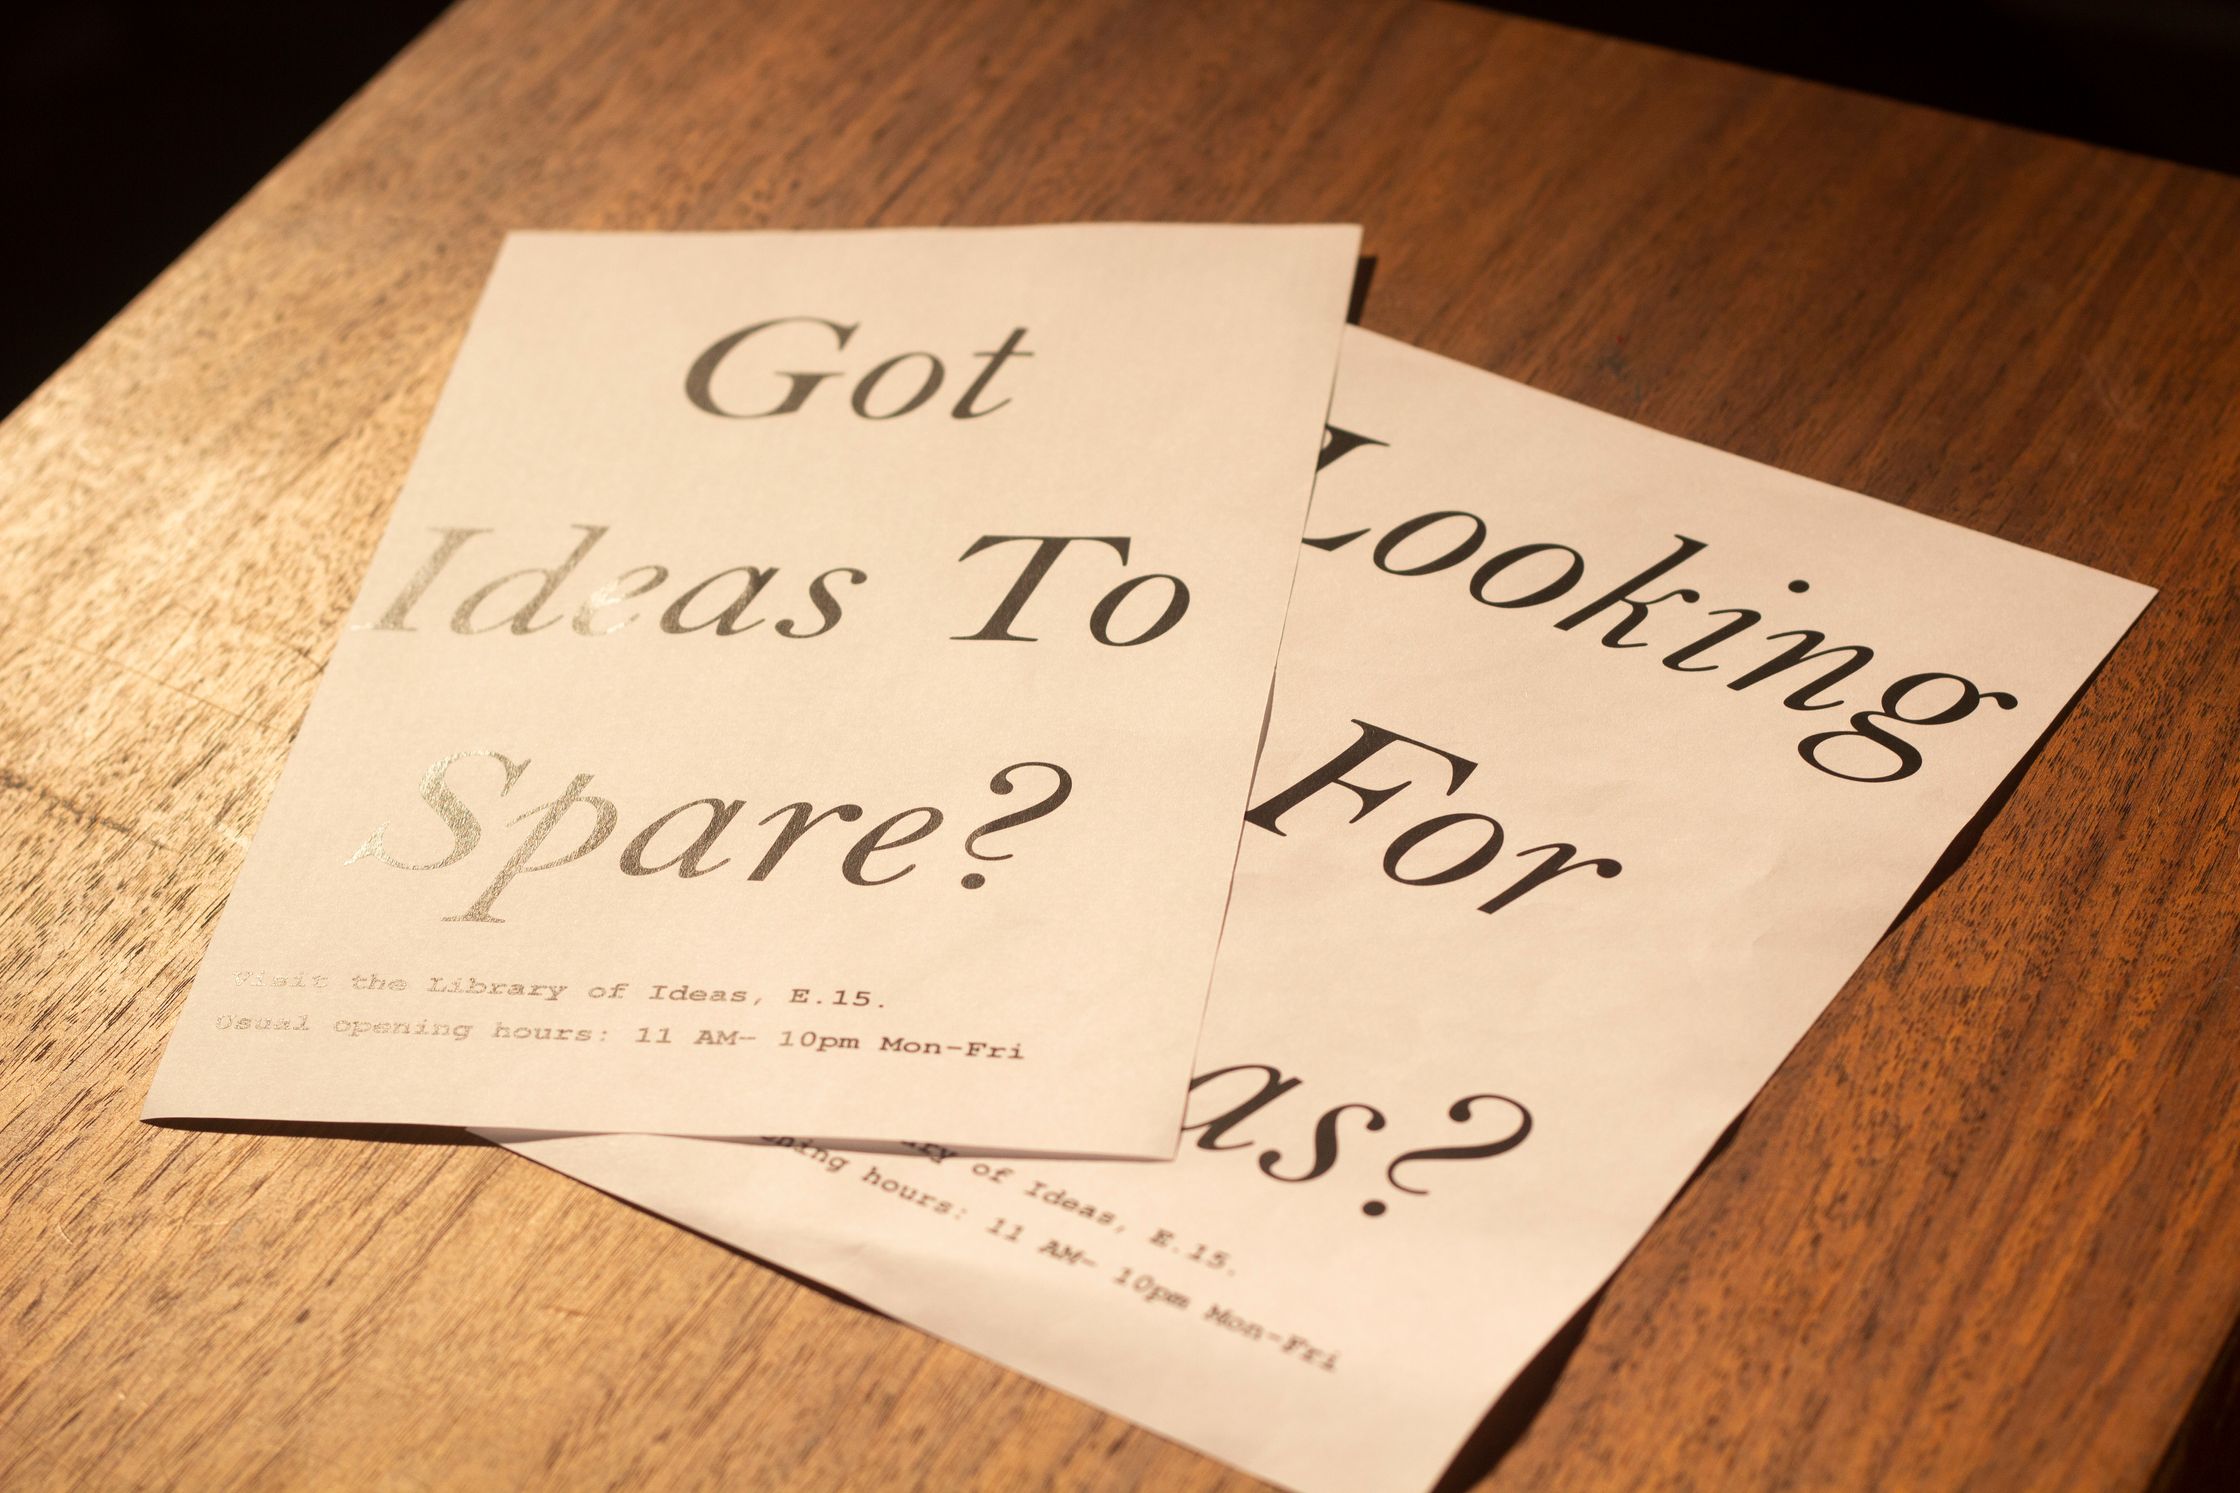 Got
Ideas To
Spare?
Visit the Library of Ideas, E.15.
Usual opening hours: 11 AM- 10pm Mon-Fri
Looking
For
as?
ry of Ideas, E.15.
ning hours: 11 AM- 10pm Mon-Fri